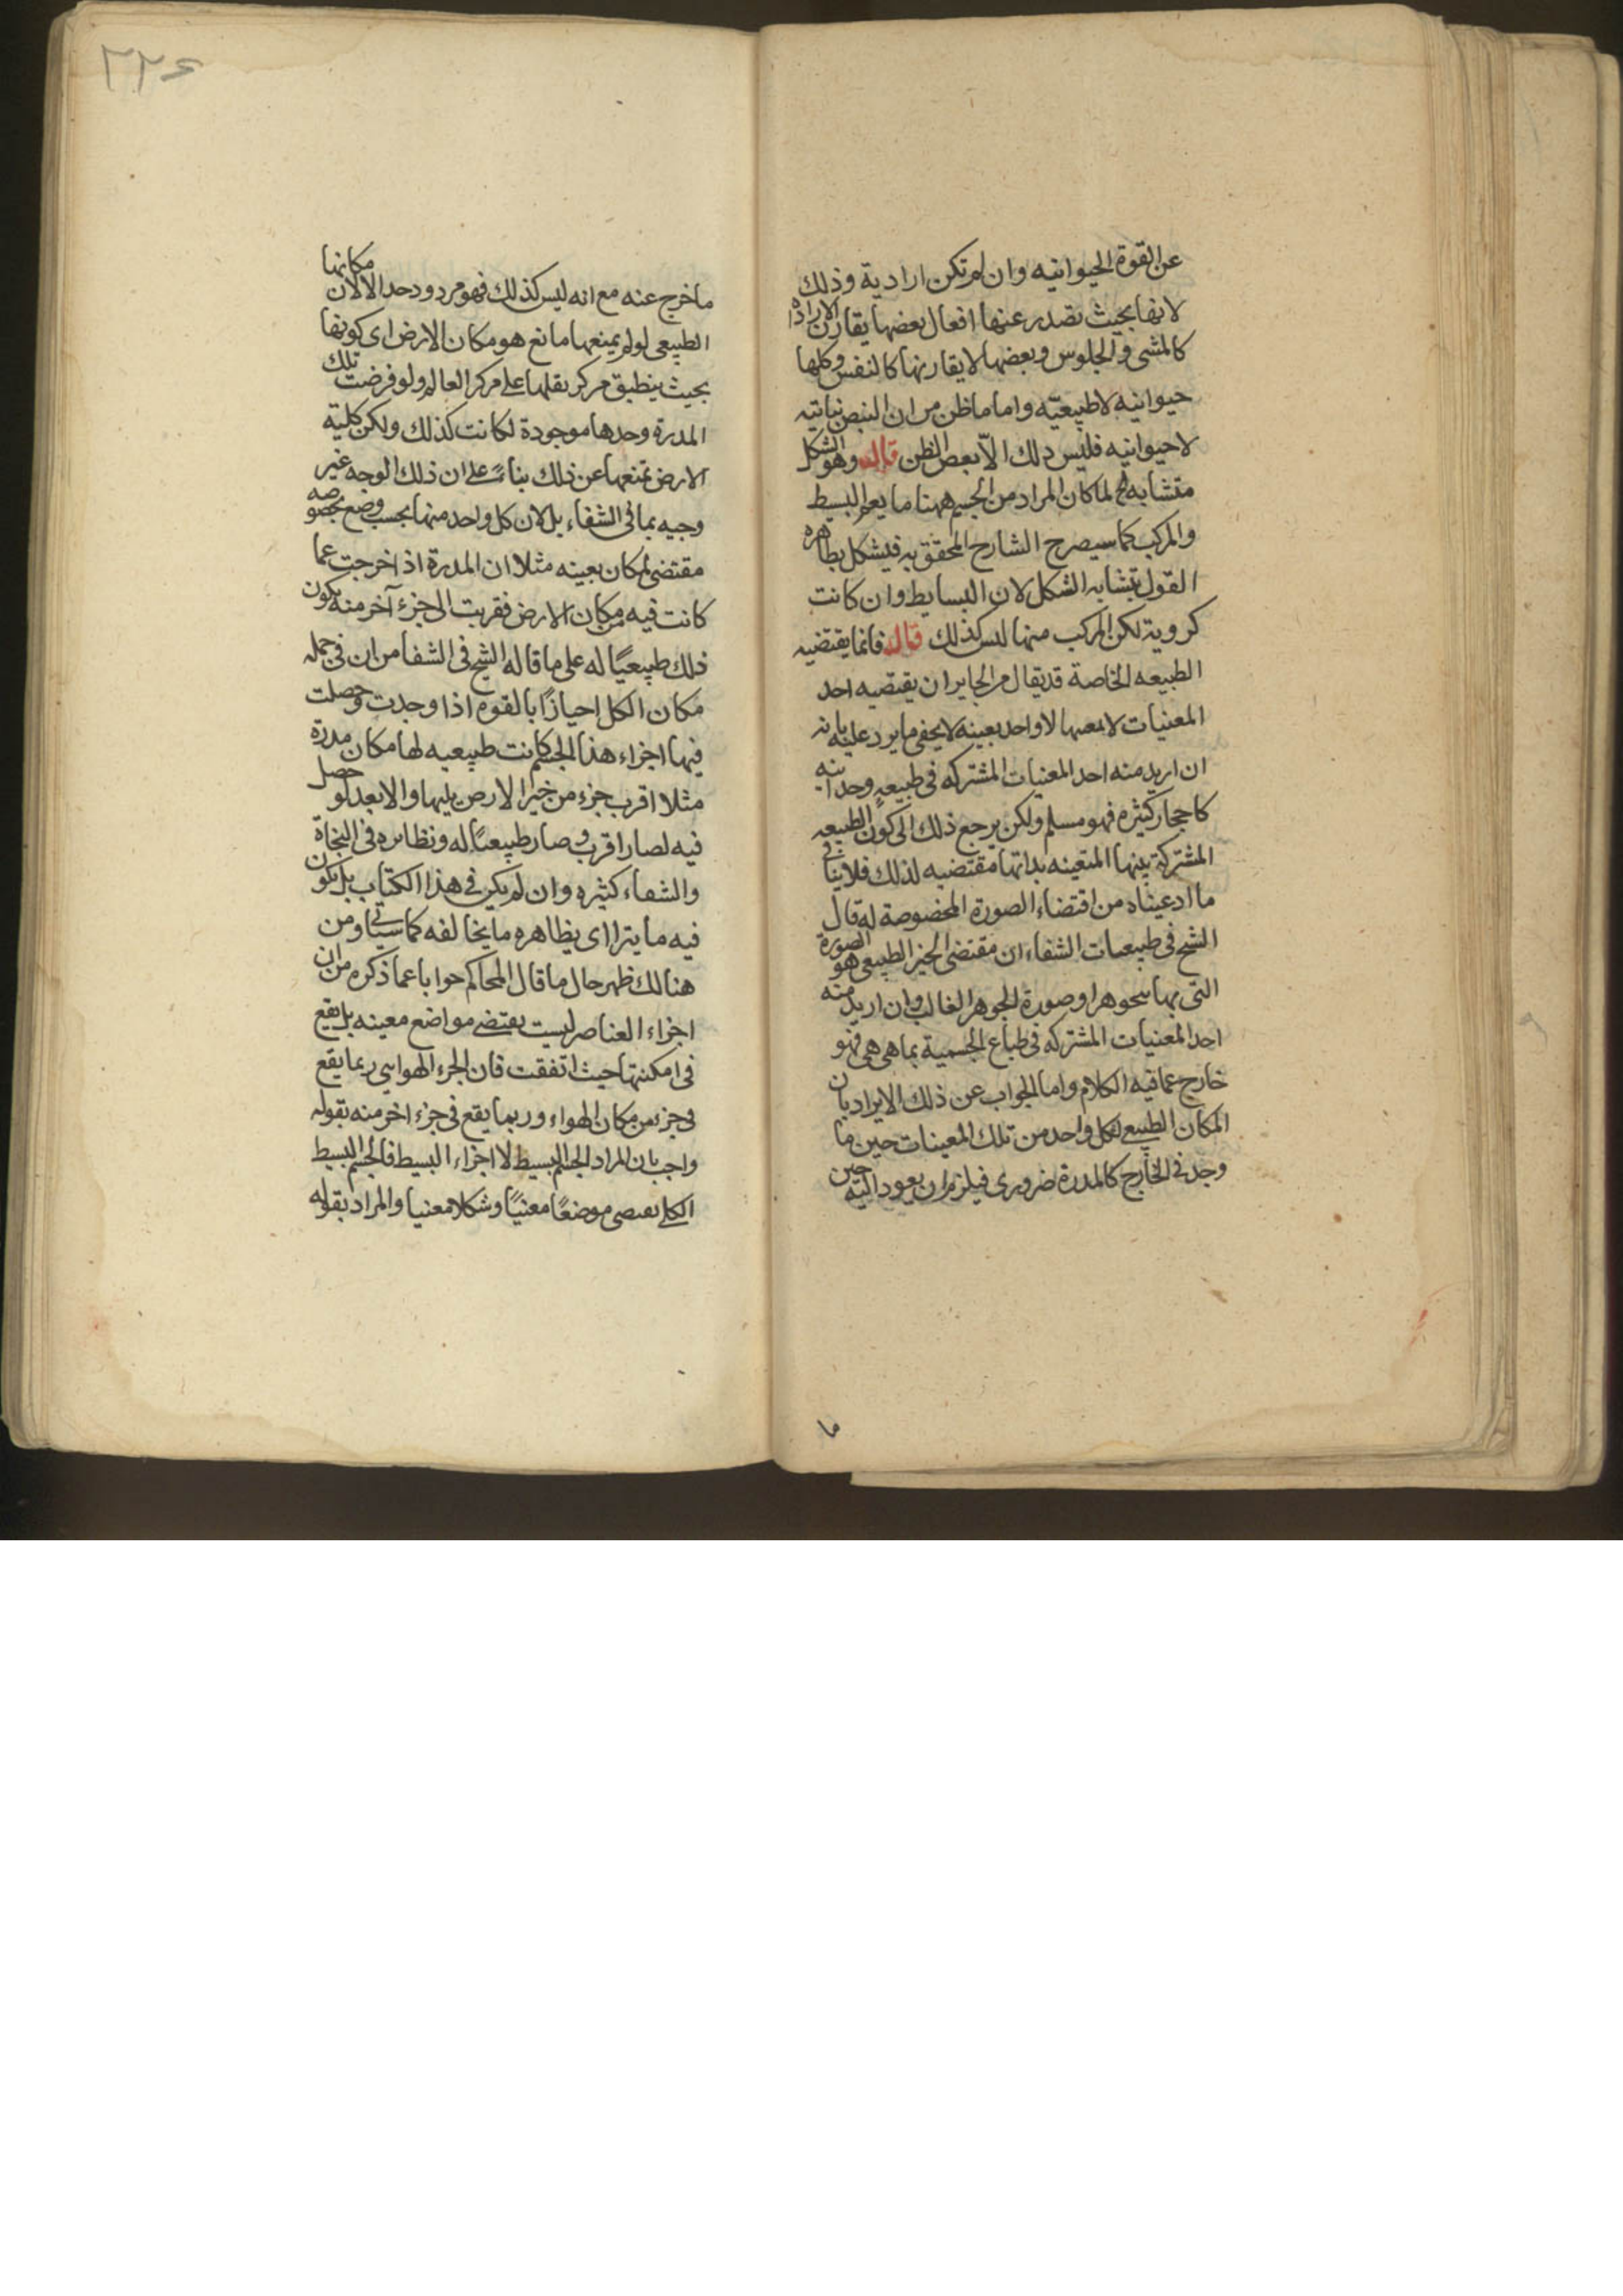 عن القوة الحيوانيه وان لم تكن ارادية وذلك
لانها بحيث تصدر عنها افعال بعضها يقارن الارادة
كالمشى والجلوس وبعضها لا يقارنها كالنفس وكلها
حيوانيه لا طبيعيّه واما ما ظن من ان النبض نباتيه
لا حيوانيه فليس ذلك الّا بعض الظن قال وهو الشكل
متشابه الخ لما كان المراد من الجسم ههنا ما يعم البسيط
والمركب كما سيصرح الشارح المحقق به فيشكل بظاهره
القول بتشابه الشكل لان البسايط وان كانت
كروية لكن المركب منها ليس كذلك قال فانما يقتضيه
الطبيعه الخاصة قد يقال من الجايز ان يقتضيه احد
المعنيات لا بعينها لا واحد بعينه لا يخفى ما يرد عليه بانه
ان اريد منه احد المعنيات المشتركه فى طبيعةٍ وحدانيه
كاحجار كثيره فهو مسلم ولكن يرجع ذلك الى كون الطبيعه
المشتركة بينها المتعينه بذاتها مقتضيه لذلك فلا ينافى
ما ادعيناه من اقتضاء الصورة المخصوصة له قال
الشيخ فى طبيعيات الشفاء ان مقتضى الحيز الطبيعى هو الصورة
التى بها يتجوهر او صورة الجوهر الغالب وان اريد منه
احد المعنيات المشتركه فى طباع الجسمية بما هى هى فهو
خارج عما فيه الكلام واما الجواب عن ذلك الايراد بان
المكان الطبيعى لكل واحد من تلك المعينات حين ما
وجد فى الخارج كالمدرة ضرورى فيلزم ان يعود اليه حين
ما
٢٢٤
ما خرج عنه مع انه ليس كذلك فهو مردود لان مكانها
الطبيعى لو لم يمنعها مانع هو مكان الارض اى كونها
بحيث ينطبق مركز ثقلها على مركز العالم ولو فرضت تلك
المدرة وحدها موجودة لكانت كذلك ولكن كلية
الارض تمنعها عن ذلك بناءً على ان ذلك الوجه غير
وجيه بما فى الشفاء بل لان كل واحد منها بحسب وضع بخصوصه
مقتضى لمكان بعينه مثلا ان المدرة اذ اخرجت عما
كانت فيه من مكان الارض فقربت الى جزء آخر منه يكون
ذلك طبيعيًا له على ما قاله الشيخ فى الشفا من ان فى جمله
مكان الكل احيازًا بالقوه اذا وجدت وحصلت
فيها اجزاء هذا الجسم كانت طبيعيه لها مكان مدرة
مثلا اقرب جزء من حيز الارض يليها والابعد لو حصل
فيه لصار اقرب وصار طبيعيًا له ونظائره فى النجاة
والشفاء كثيره وان لم يكن فى هذا الكتاب بل يكون
فيه ما يتراى بظاهره ما يخالفه كما سياتى ومن
هنالك ظهر حال ما قال المحاكم جوابا عما ذكره من ان
اجزاء العناصر ليست يقتضى مواضع معينه بل يقع
فى امكنتها حيث اتفقت فان الجزء الهوايى ربما يقع
فى جزء من مكان الهواء وربما يقع فى جزء اخر منه بقوله
واجب بان المراد الجسم البسيط لا اجزاء البسيط فالجسم البسيط
الكلى يقتضى موضعًا معنيًا وشكلا معنيا والمراد بقوله